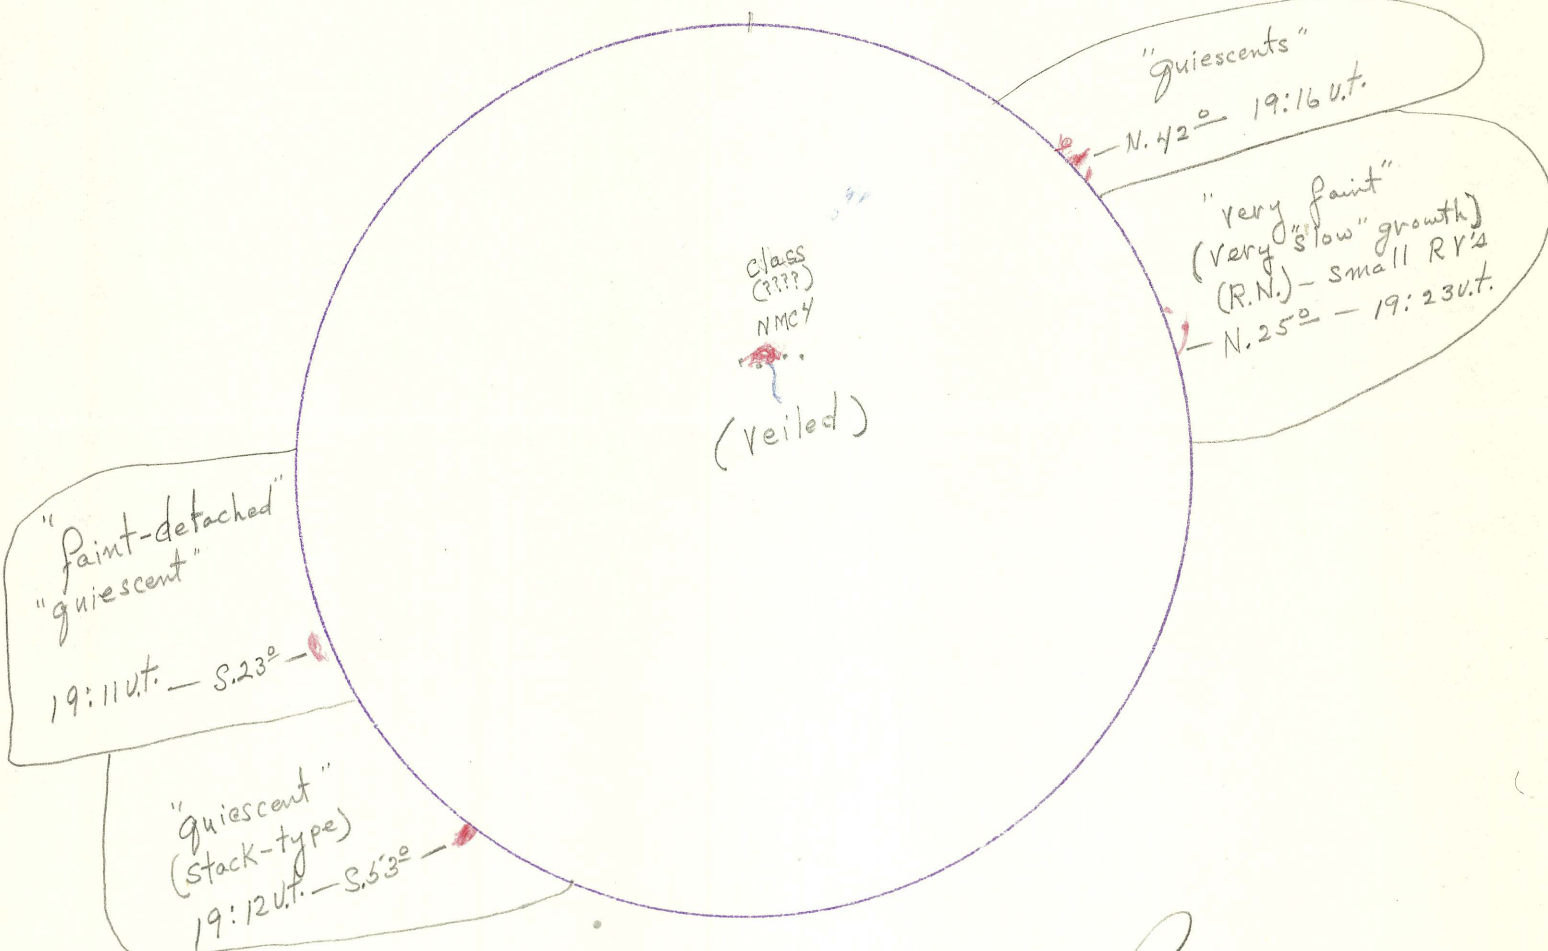 "quiescents"
— N.42° — 19:16 U.T.
"very faint"
(very "slow" growth)
(R.N.) — small RV's
— N.25° — 19:23 U.T.
class
(????)
NMCY
(veiled)
"faint-detached"
"quiescent"
19:11 U.T. — S.23° —
"quiescent"
(stack-type)
19:12 U.T. — S.53° —